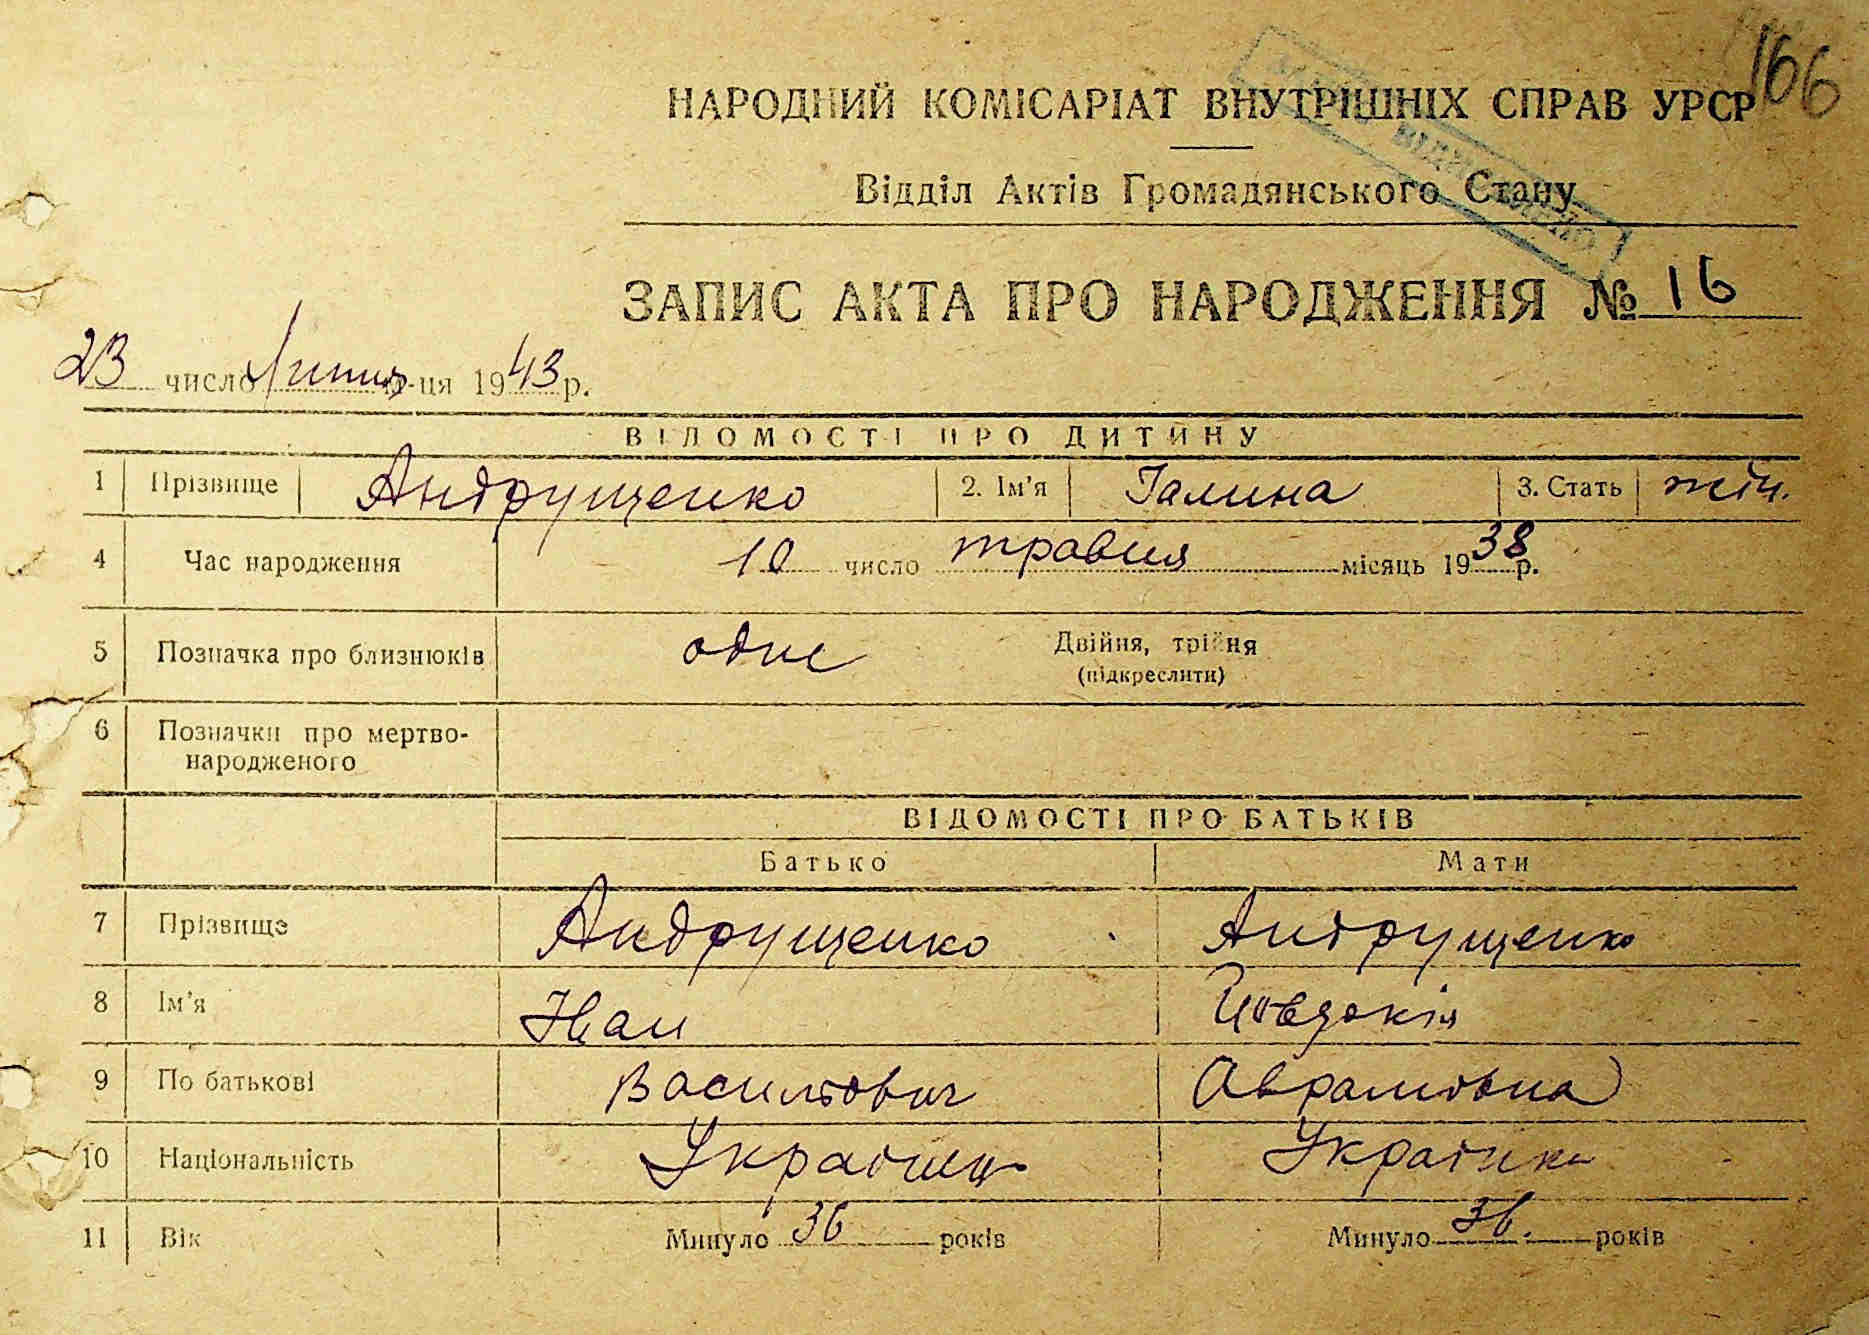 166
НАРОДНИЙ КОМІСАРІАТ ВНУТРІШНІХ СПРАВ УРСР
Відділ Актів Громадянського Стану
ЗАПИС АКТА ПРО НАРОДЖЕННЯ № 16
23 число Липня м-ця 1943 р.
ВІДОМОСТІ ПРО ДИТИНУ
1 Прізвище Андрущенко 2. Ім'я Галина 3. Стать жін.
4 Час народження 10 число травня місяць 1938 р.
5 Позначка про близнюків одне Двійня, трійня
(підкреслити)
6 Позначки про мертво-
народженого
ВІДОМОСТІ ПРО БАТЬКІВ
Батько Мати
7 Прізвище Андрущенко Андрущенко
8 Ім'я Іван Йовдокія
9 По батькові Васильович Аврамовна
10 Національність Українець Українка
11 Вік Минуло 36 років Минуло 36. років